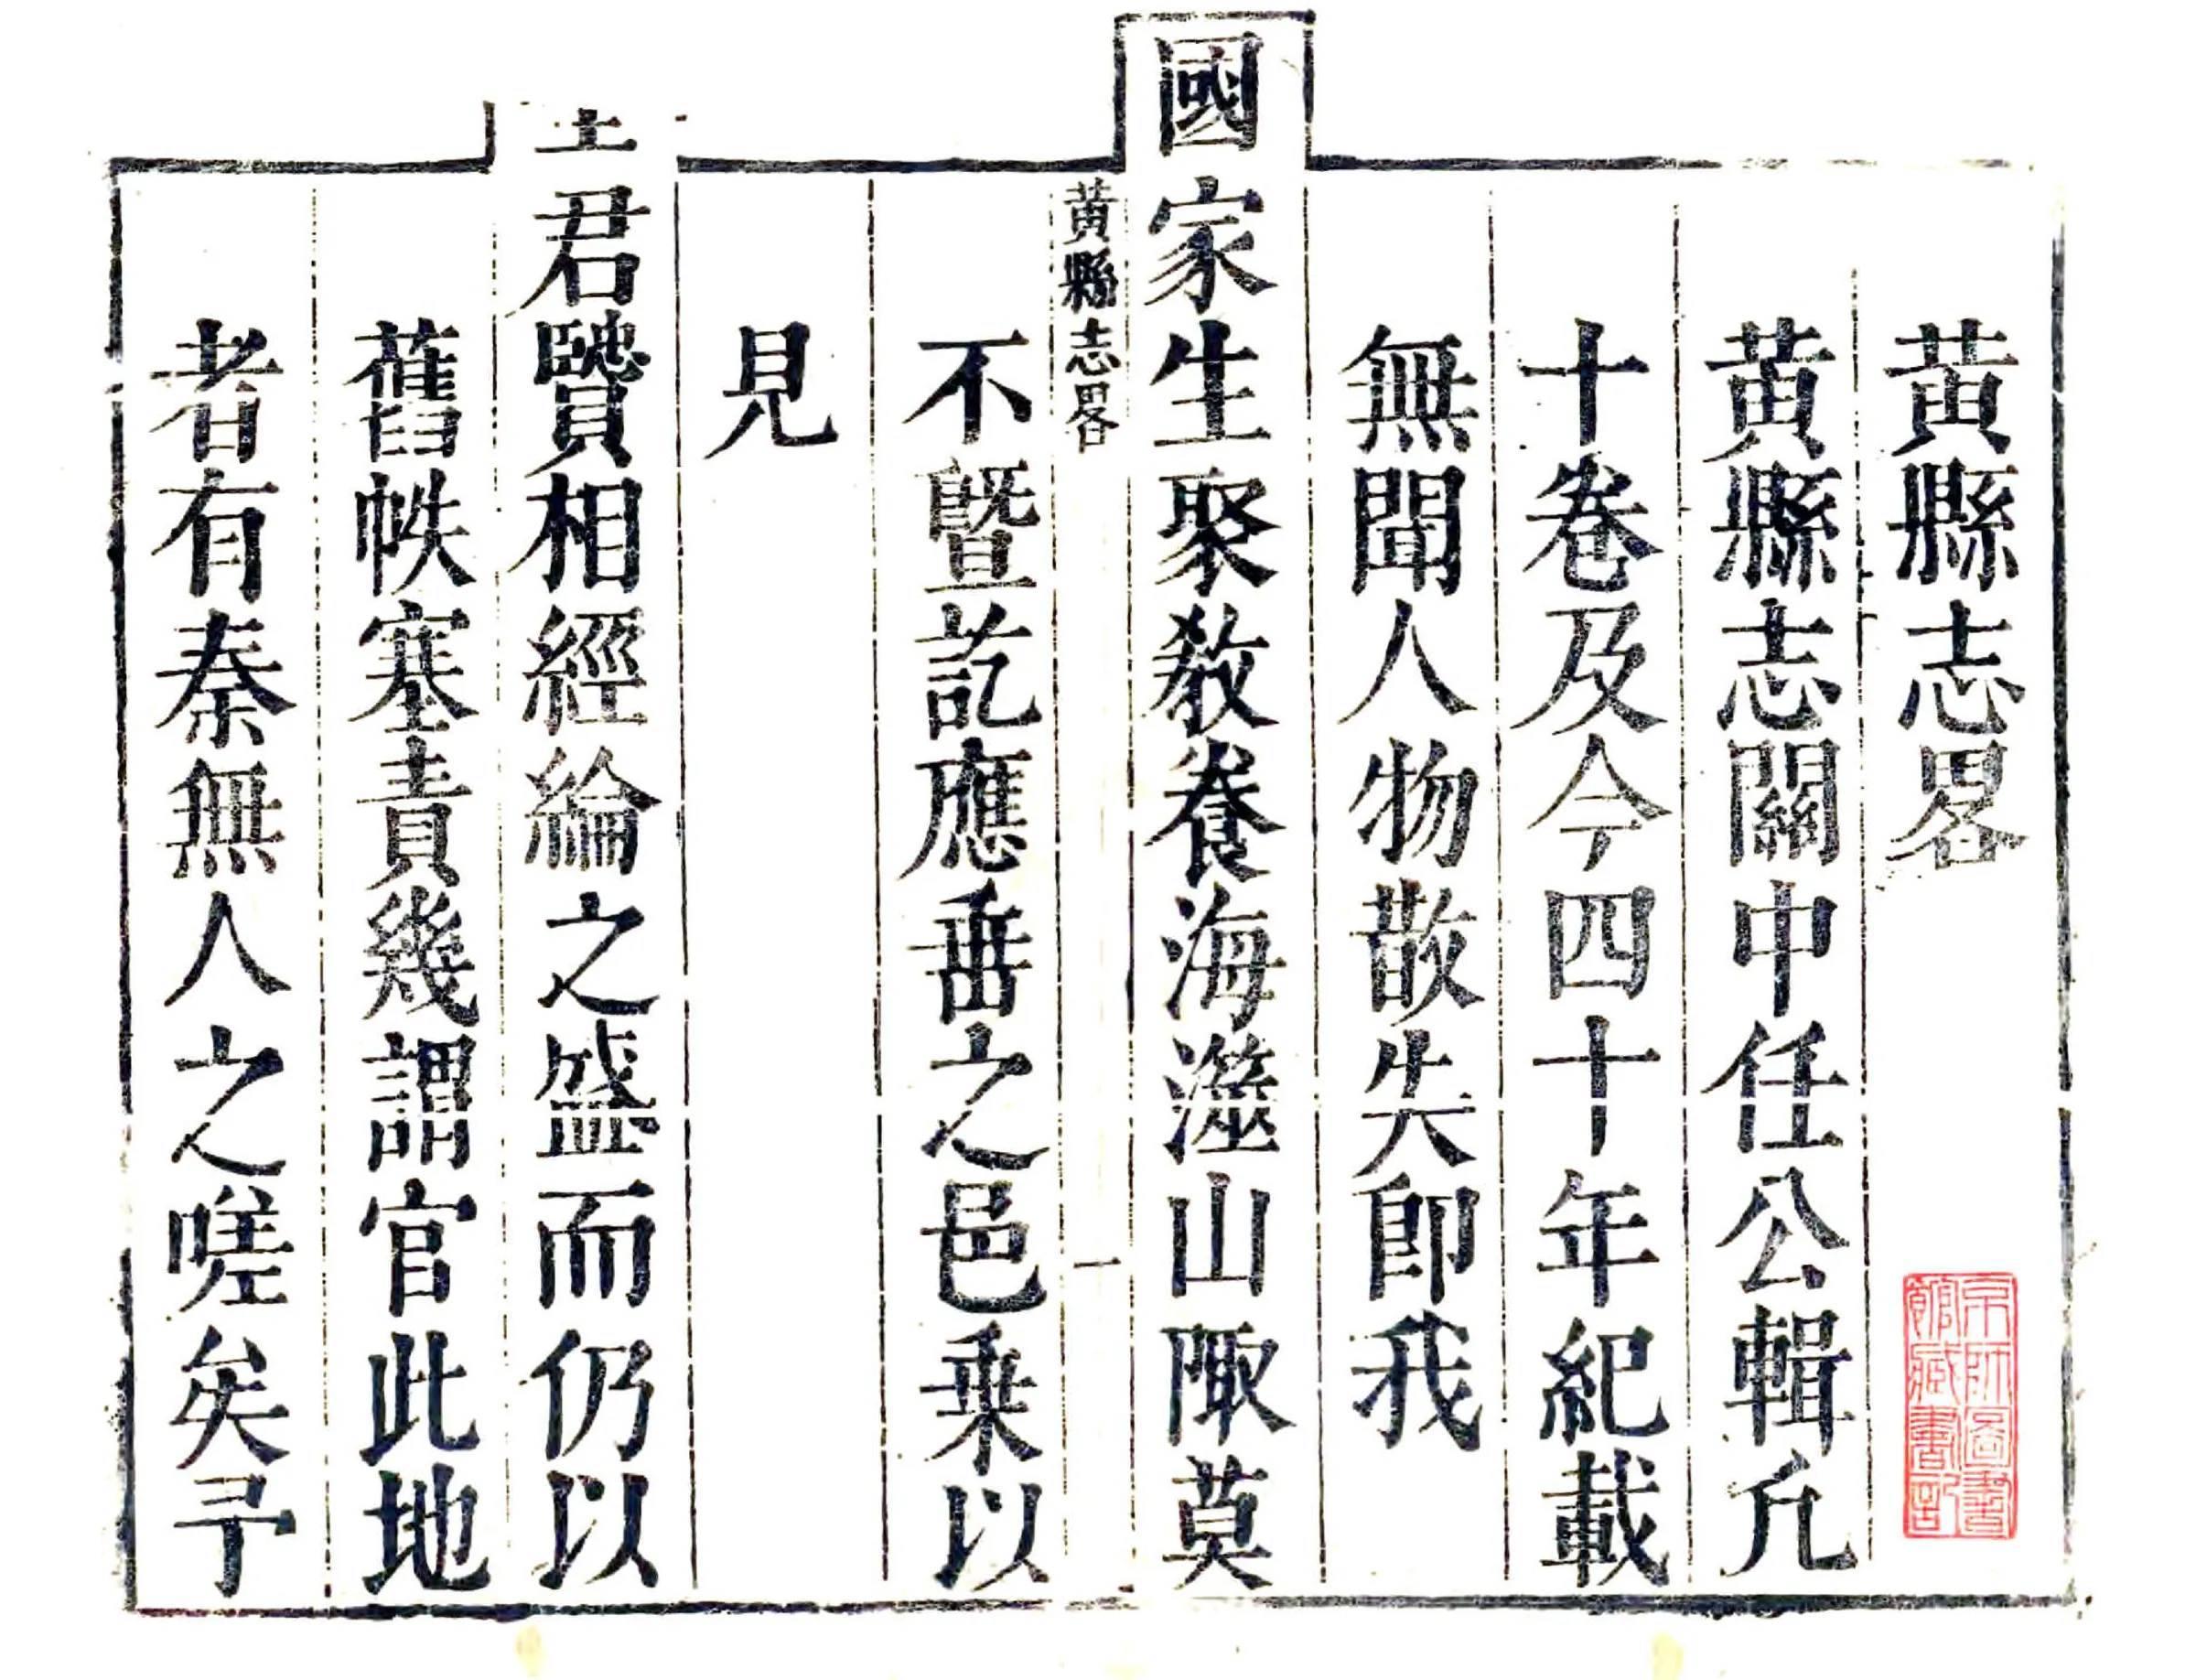 黃縣志畧
黃縣志關中任公輯凢
十卷及今四十年紀載
無聞人物散失卽我
國家生聚敎養海澨山陬莫
黃縣志畧
一
不暨訖應垂之邑乗以
見
君贒相經綸之盛而仍以
舊帙塞責幾謂官此地
者有秦無人之嗟矣予
京師圖書
館藏書記